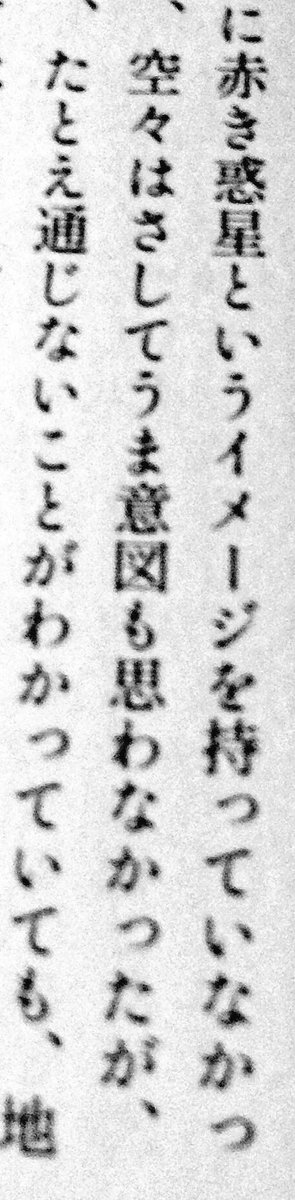 に赤き惑星というイメージを持っていなかっ
、空々はさしてうま意図も思わなかったが、
、たとえ通じないことがわかっていても、地